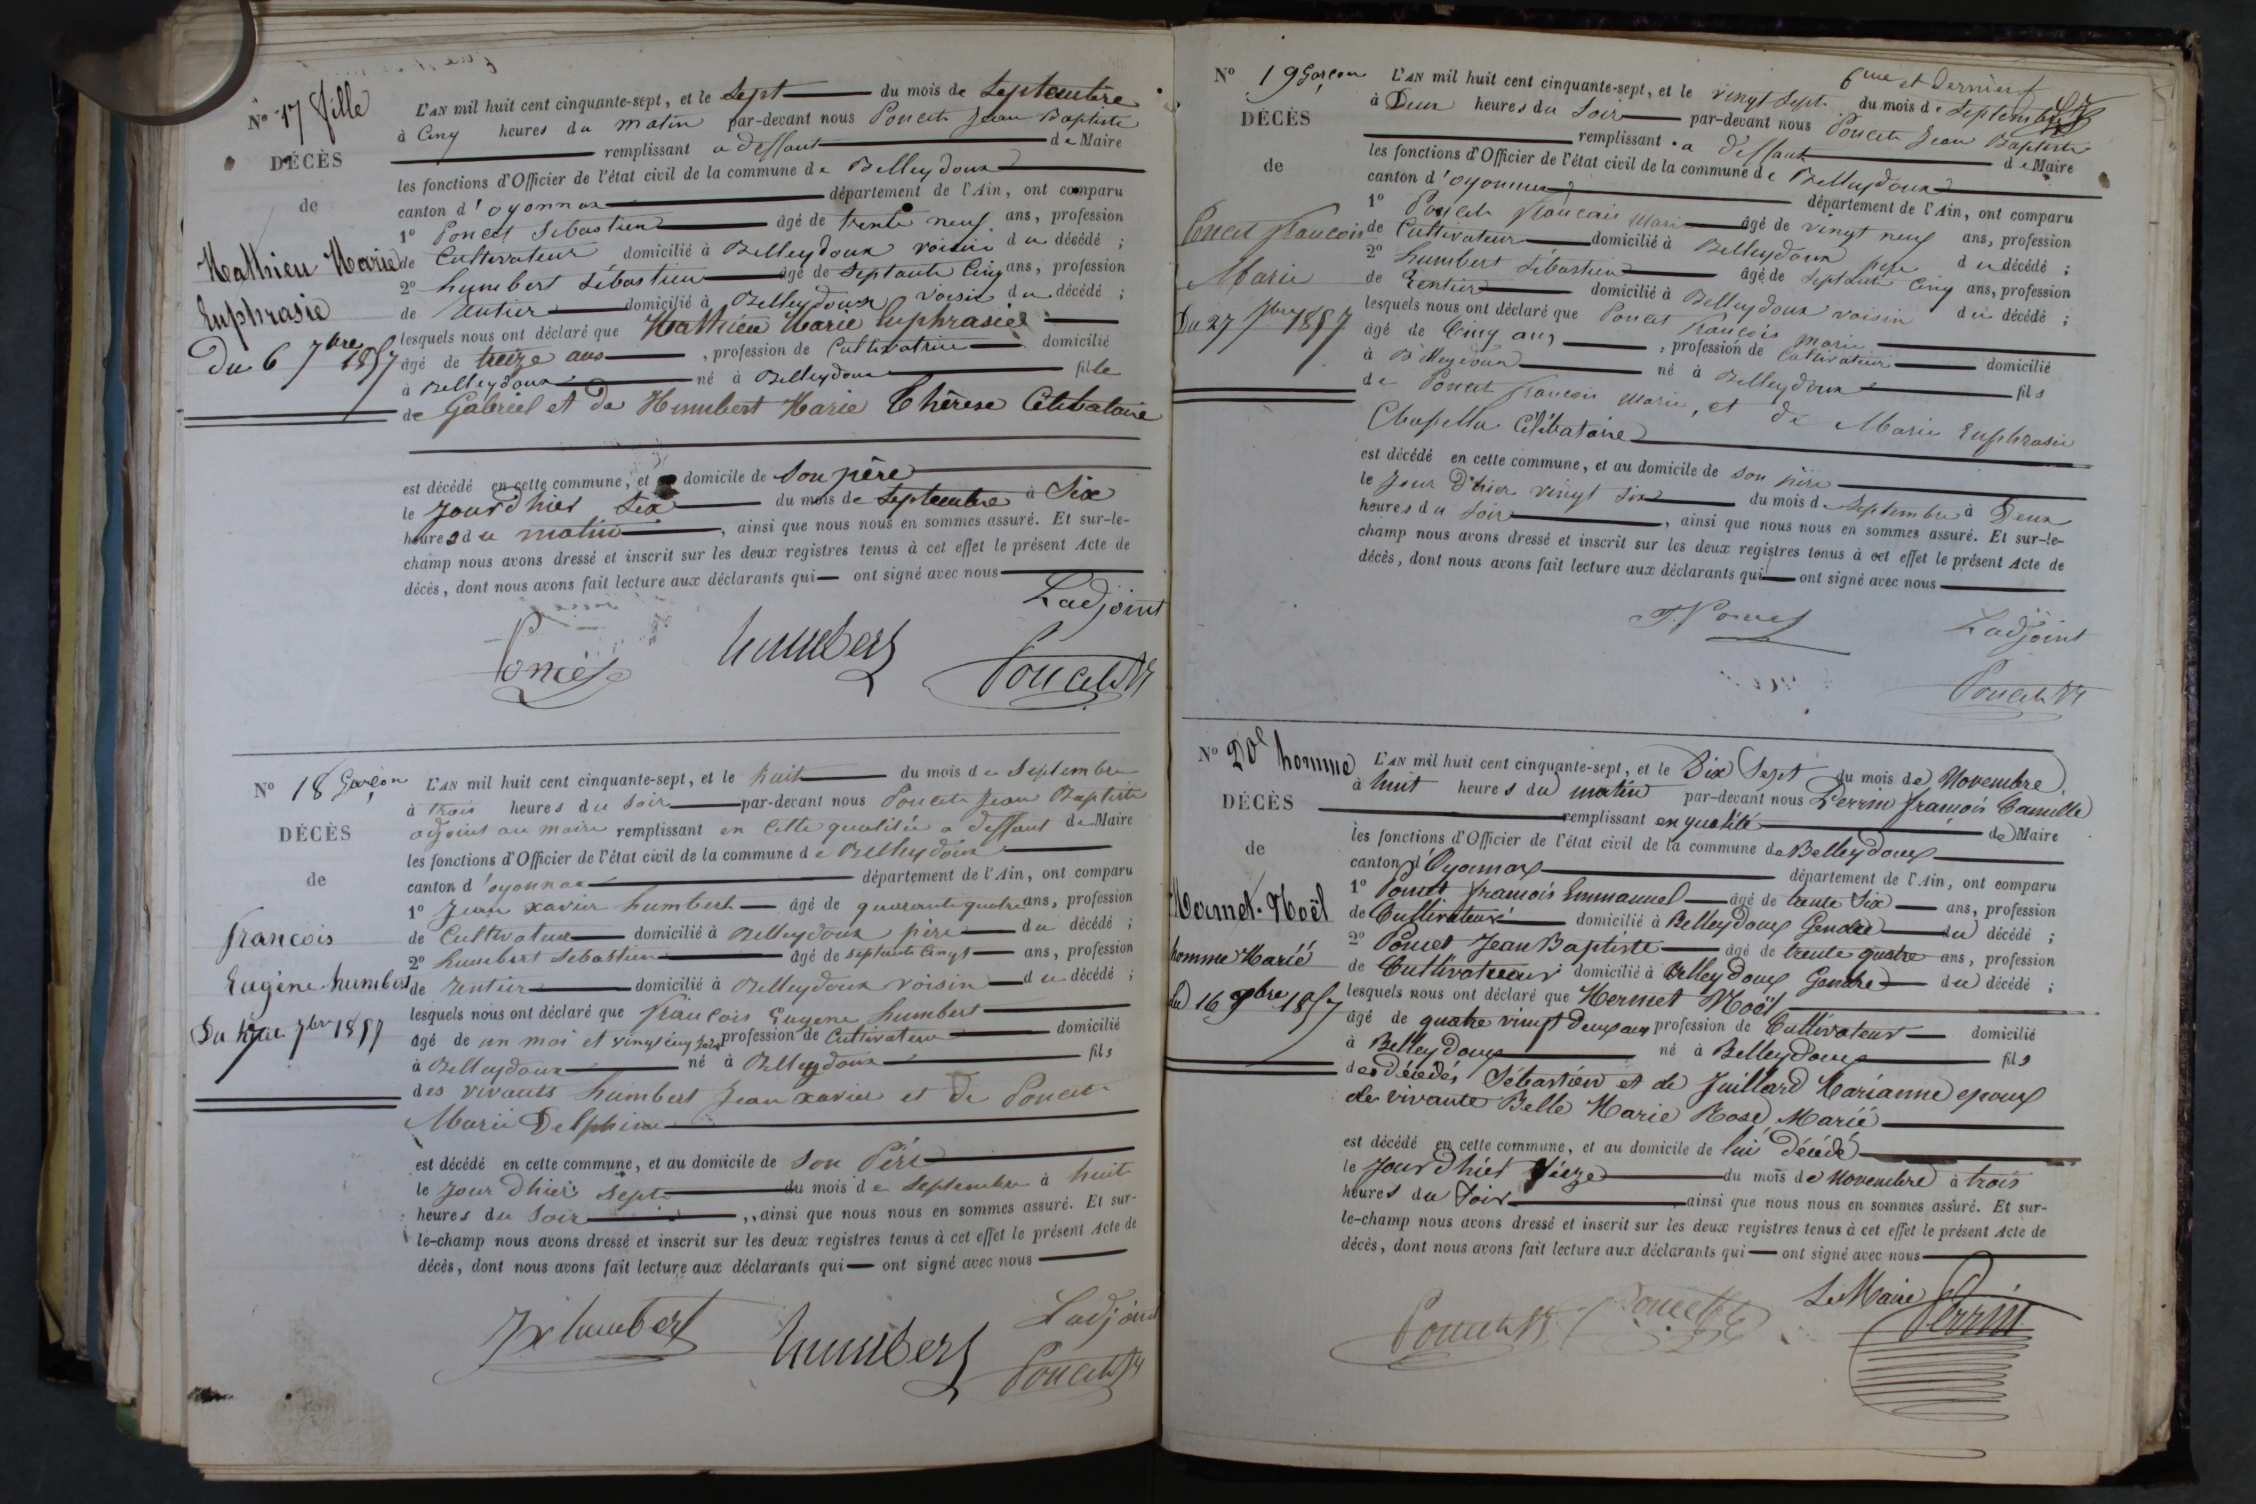 N° 17 fille
DÉCÈS
de
Mathieu Marie
Euphrasie
Du 6 7bre 1857
L'AN mil huit cent cinquante-sept, et le Sept du mois de Septembre
à Cinq heures du matin par-devant nous Poncet Jean Baptiste
remplissant a deffaut de Maire
les fonctions d'Officier de l'état civil de la commune de Belleydoux
canton d'oyonnax département de l'Ain, ont comparu
1° Poncet Sébastien âgé de trente neuf ans, profession
de Cultivateur domicilié à Belleydoux voisin du décédé ;
2° humbert Sébastien âgé de Septante Cinq ans, profession
de Rentier domicilié à Belleydoux voisin du décédé ;
lesquels nous ont déclaré que Mathieu Marie Euphrasie
âgé de treize ans, profession de Cultivatrice domicilié
à Belleydoux né à Belleydoux fille
de Gabriel et de Humbert Marie Thérèse Célibataire
est décédé en cette commune, et domicile de Son père
le Jour d'hier Six du mois de Septembre à Six
heures du matin, ainsi que nous nous en sommes assuré. Et sur-le-
champ nous avons dressé et inscrit sur les deux registres tenus à cet effet le présent Acte de
décès, dont nous avons fait lecture aux déclarants qui ont signé avec nous
Ladjoint
Poncet humbert Poncet
N° 18 Garçon
DÉCÈS
de
francois
Eugène humbert
Du 7bre 1857
L'AN mil huit cent cinquante-sept, et le huit du mois de Septembre
à trois heures du Soir par-devant nous Poncet Jean Baptiste
adjoint au maire remplissant en cette qualitée a deffaut de Maire
les fonctions d'Officier de l'état civil de la commune de Belleydoux
canton d'oyonnax département de l'Ain, ont comparu
1° Jean xavier humbert âgé de quarante quatre ans, profession
de Cultivateur domicilié à Belleydoux père du décédé ;
2° humbert Sebastien âgé de septante Cinq ans, profession
de Rentier domicilié à Belleydoux voisin du décédé ;
lesquels nous ont déclaré que francois Eugene humbert
âgé de un moi et vingt cinq jours profession de Cultivateur domicilié
à Belleydoux né à Belleydoux fils
des vivants humbert Jean xavier et de Poncet
Marie Delphine
est décédé en cette commune, et au domicile de Son Père
le Jour d'hier Sept du mois de Septembre à huit
heures du Soir, ainsi que nous nous en sommes assuré. Et sur-
le-champ nous avons dressé et inscrit sur les deux registres tenus à cet effet le présent Acte de
décès, dont nous avons fait lecture aux déclarants qui ont signé avec nous
Ladjoint
JX humbert humbert Poncet
6me et Dernier f
N° 19 Garçon
DÉCÈS
de
Poncet francois
Marie
Du 27 7bre 1857
L'AN mil huit cent cinquante-sept, et le vingt Sept du mois de Septembre
à Deux heures du Soir par-devant nous Poncet Jean Baptiste
remplissant a deffaut de Maire
les fonctions d'Officier de l'état civil de la commune de Belleydoux
canton d'oyonnax département de l'Ain, ont comparu
1° Poncet francois Marie âgé de vingt neuf ans, profession
de Cultivateur domicilié à Belleydoux père du décédé ;
2° humbert Sébastien âgé de Septante Cinq ans, profession
de Rentier domicilié à Belleydoux voisin du décédé ;
lesquels nous ont déclaré que Poncet francois marie
âgé de Cinq ans, profession de Cultivateur domicilié
à Belleydoux né à Belleydoux fils
de Poncet francois Marie, et de Marie Euphrasie
Chapellu Célébataire
est décédé en cette commune, et au domicile de son père
le Jour d'hier vingt Six du mois de Septembre à Deux
heures du Soir, ainsi que nous nous en sommes assuré. Et sur-le-
champ nous avons dressé et inscrit sur les deux registres tenus à cet effet le présent Acte de
décès, dont nous avons fait lecture aux déclarants qui ont signé avec nous
Ladjoint
Poncet
N° 20e homme
DÉCÈS
de
Mermet Noël
homme Marié
du 16 9bre 1857
L'AN mil huit cent cinquante-sept, et le Dix Sept du mois de Novembre
à huit heures du matin par-devant nous Perrin françois Camille
remplissant en qualité de Maire
les fonctions d'Officier de l'état civil de la commune de Belleydoux
canton d'Oyonnax département de l'Ain, ont comparu
1° Poncet françois Emmanuel âgé de trente Six ans, profession
de Cultivateur domicilié à Belleydoux Gendre du décédé ;
2° Poncet Jean Baptiste âgé de trente quatre ans, profession
de Cultivateur domicilié à Belleydoux Gendre du décédé ;
lesquels nous ont déclaré que Mermet Noël
âgé de quatre vingt Deux ans profession de Cultivateur domicilié
à Belleydoux né à Belleydoux fils
des décédés Sébastien et de Juillard Marianne epoux
de vivante Belle Marie Rose Marié
est décédé en cette commune, et au domicile de lui décédé
le Jour d'hier Sieze du mois de Novembre à trois
heures du Soir ainsi que nous nous en sommes assuré. Et sur-
le-champ nous avons dressé et inscrit sur les deux registres tenus à cet effet le présent Acte de
décès, dont nous avons fait lecture aux déclarants qui ont signé avec nous
Le Maire
Poncet Poncet Perrin